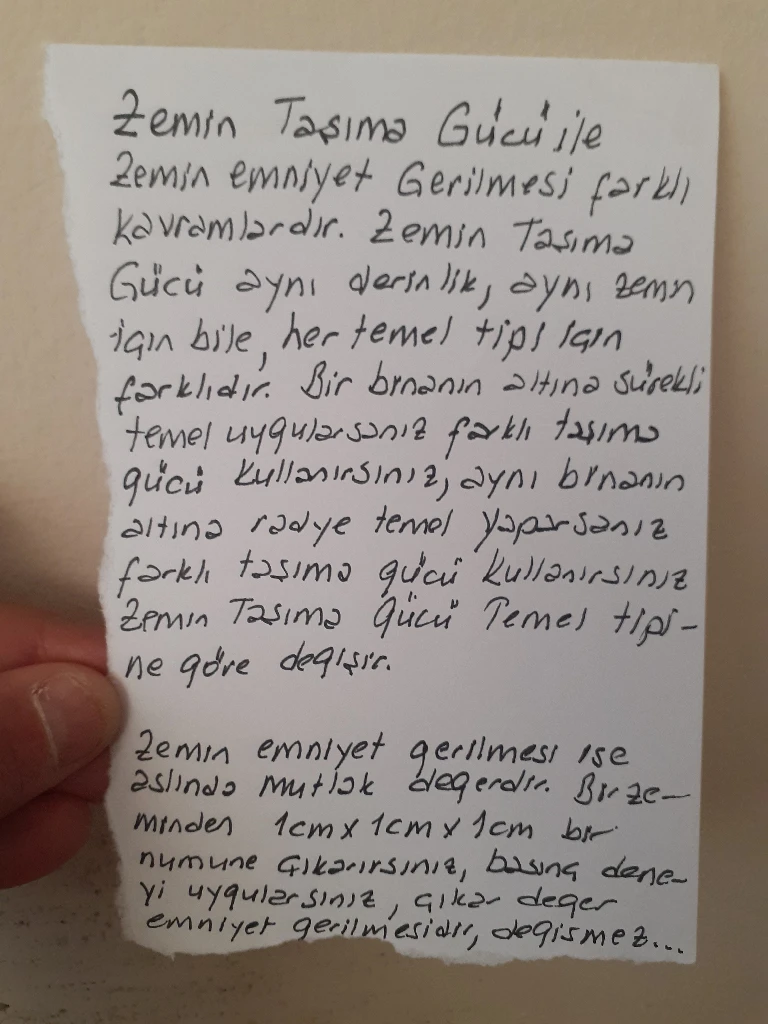 Zemin Taşıma Gücü ile
Zemin emniyet Gerilmesi farklı
kavramlardır. Zemin Taşıma
Gücü aynı derinlik, aynı zemin
için bile, her temel tipi için
farklıdır. Bir binanın altına sürekli
temel uygularsanız farklı taşıma
gücü kullanırsınız, aynı binanın
altına radye temel yaparsanız
farklı taşıma gücü kullanırsınız
Zemin Taşıma Gücü Temel tipi-
ne göre değişir.
Zemin emniyet gerilmesi ise
aslında mutlak değerdir. Bir ze-
minden 1cm x 1cm x 1cm bir
numune çıkarırsınız, basınç dene-
yi uygularsınız, çıkar değer
emniyet gerilmesidir, değişmez...